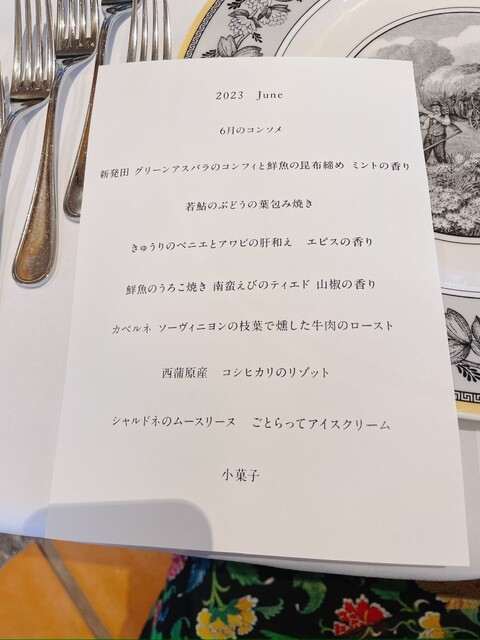 2023　June
6月のコンソメ
新発田 グリーンアスパラのコンフィと鮮魚の昆布締め ミントの香り
若鮎のぶどうの葉包み焼き
きゅうりのベニエとアワビの肝和え　エピスの香り
鮮魚のうろこ焼き 南蛮えびのティエド 山椒の香り
カベルネ ソーヴィニヨンの枝葉で燻した牛肉のロースト
西蒲原産　コシヒカリのリゾット
シャルドネのムースリーヌ　ごとらってアイスクリーム
小菓子